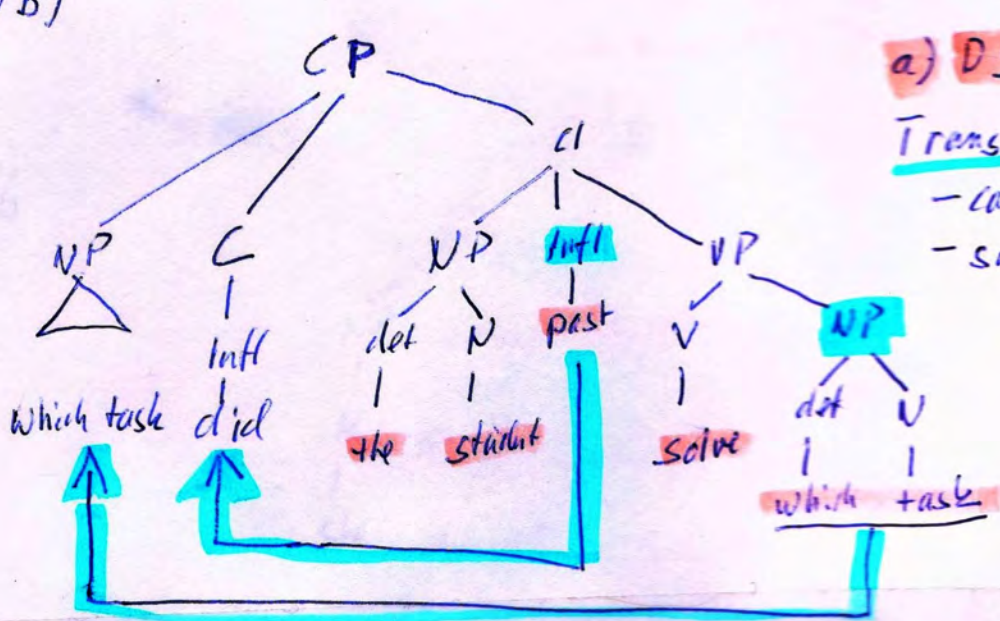 b)
CP
a) D
CI
Trans
NP C NP Infl VP
det N past V NP
Infl
which task did
det N
the student
solve
which task